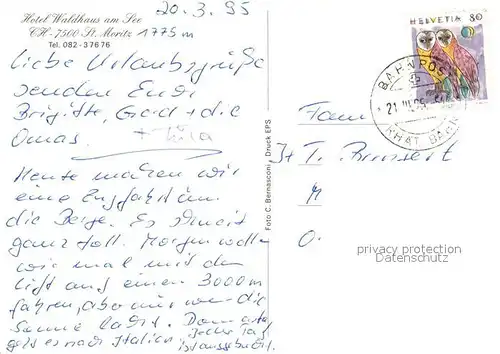 Hotel Waldhaus am See
CH-7500 St. Moritz
Tel. 082-37676
20.3.95
1775m
Liebe Urlaubsgrüße
senden Euch
Brigitte, Gerd + die
Omas.
Heute machen wir
eine Zugfahrt in
die Berge. Es schneit
ganz toll. Morgen wollen
wir mal mit dem
Lift auf einen 3000m
fahren, aber nur wenn die
Sonne lacht. Dann
geht es nach Italien
jeder Tag
ist ausgebucht.
Foto C. Bernasconi, Druck EPS
HELVETIA 80
BAHNPOST
21.III.95
RHÄT. BAHN
Fam
T.
M
O.
privacy protection
Datenschutz